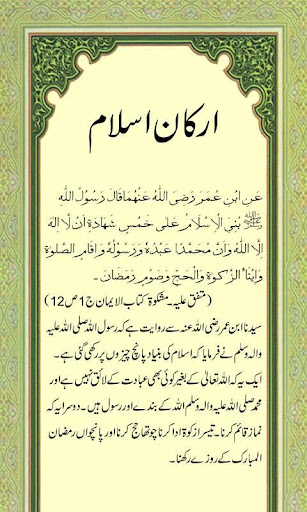 ارکان اسلام
عَنِ ابْنِ عُمَرَ رَضِیَ اللّٰهُ عَنْهُمَا قَالَ رَسُوْلُ اللّٰهِ
ﷺ بُنِیَ الْاِسْلَامُ عَلٰی خَمْسٍ شَهَادَةِ اَنْ لَا اِلٰهَ
اِلَّا اللّٰهُ وَاَنَّ مُحَمَّدًا عَبْدُهٗ وَرَسُوْلُهٗ وَاِقَامِ الصَّلٰوةِ
وَاِیْتَاءِ الزَّکٰوةِ وَالْحَجِّ وَصَوْمِ رَمَضَانَ۔
(متفق علیہ۔ مشکوۃ کتاب الایمان ج 1 ص 12)
سیدنا ابن عمر رضی اللہ عنہ سے روایت ہے کہ رسول اللہ صلی اللہ علیہ
والہ وسلم نے فرمایا کہ اسلام کی بنیاد پانچ چیزوں پر رکھی گئی ہے۔
ایک یہ کہ اللہ تعالیٰ کے بغیر کوئی بھی عبادت کے لائق نہیں ہے اور
محمد صلی اللہ علیہ والہ وسلم اللہ کے بندے اور رسول ہیں۔ دوسرا یہ کہ
نماز قائم کرنا۔ تیسرا زکوۃ ادا کرنا چوتھا حج کرنا اور پانچواں رمضان
المبارک کے روزے رکھنا۔